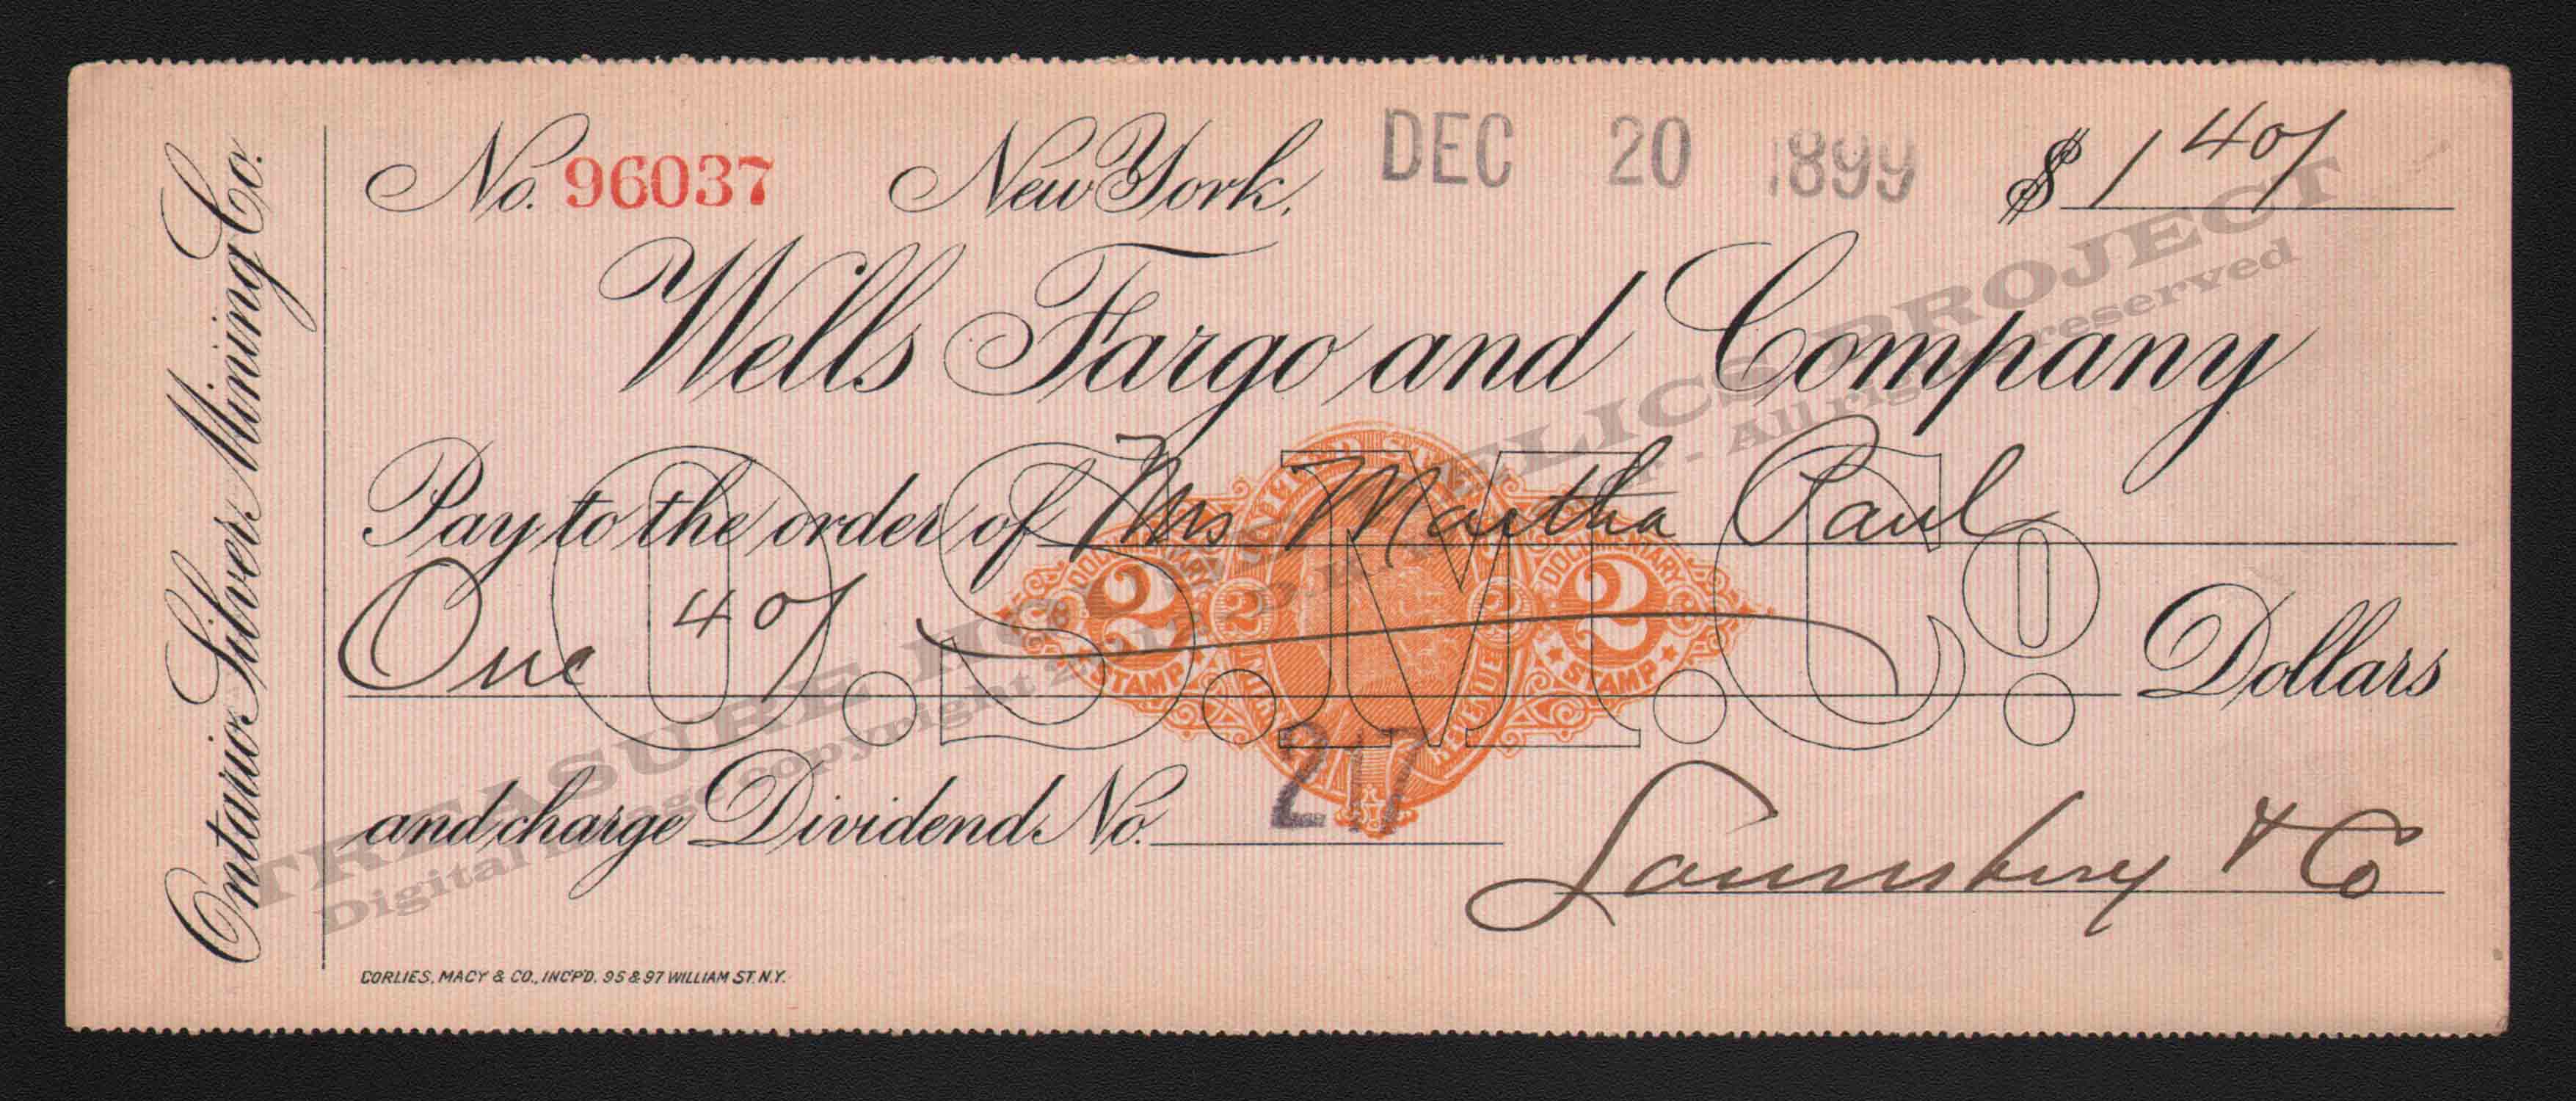 Ontario Silver Mining Co.
No. 96037 New York, DEC 20 1899 $ 1 40/
Wells Fargo and Company
Pay to the order of Mrs Martha Paul
One 40/ Dollars
O.S.M.Co.
DOCUMENTARY 2 STAMP 2 2 DOCUMENTARY 2 STAMP
REVENUE
and charge Dividend No. 217
Lounsbery & Co
CORLIES, MACY & CO., INC'P'D. 95 & 97 WILLIAM ST. N.Y.
TREASURE RELICS PROJECT
Digital image copyright - All rights reserved